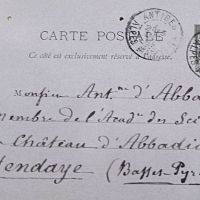 CARTE POSTALE
Ce côté est exclusivement réservé à l'adresse.
ANTIBES
Monsieur Ant.ne d'Abba
Membre de l'Acad. des Sci
Château d'Abbadi
Hendaye (Basses Pyr